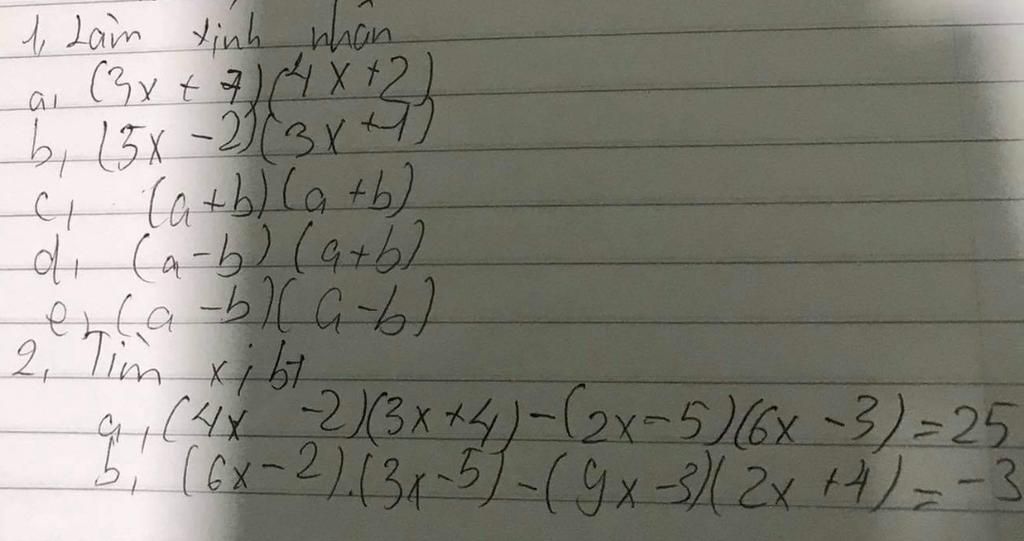 1, Làm tính nhân
a, (3x + 7)(4x + 2)
b, (5x - 2)(3x + 4)
c, (a + b)(a + b)
d, (a - b)(a + b)
e, (a - b)(a - b)
2, Tìm x, bt
a, (4x - 2)(3x + 4) - (2x - 5)(6x - 3) = 25
b, (6x - 2).(3x - 5) - (9x - 3)(2x + 4) = -3